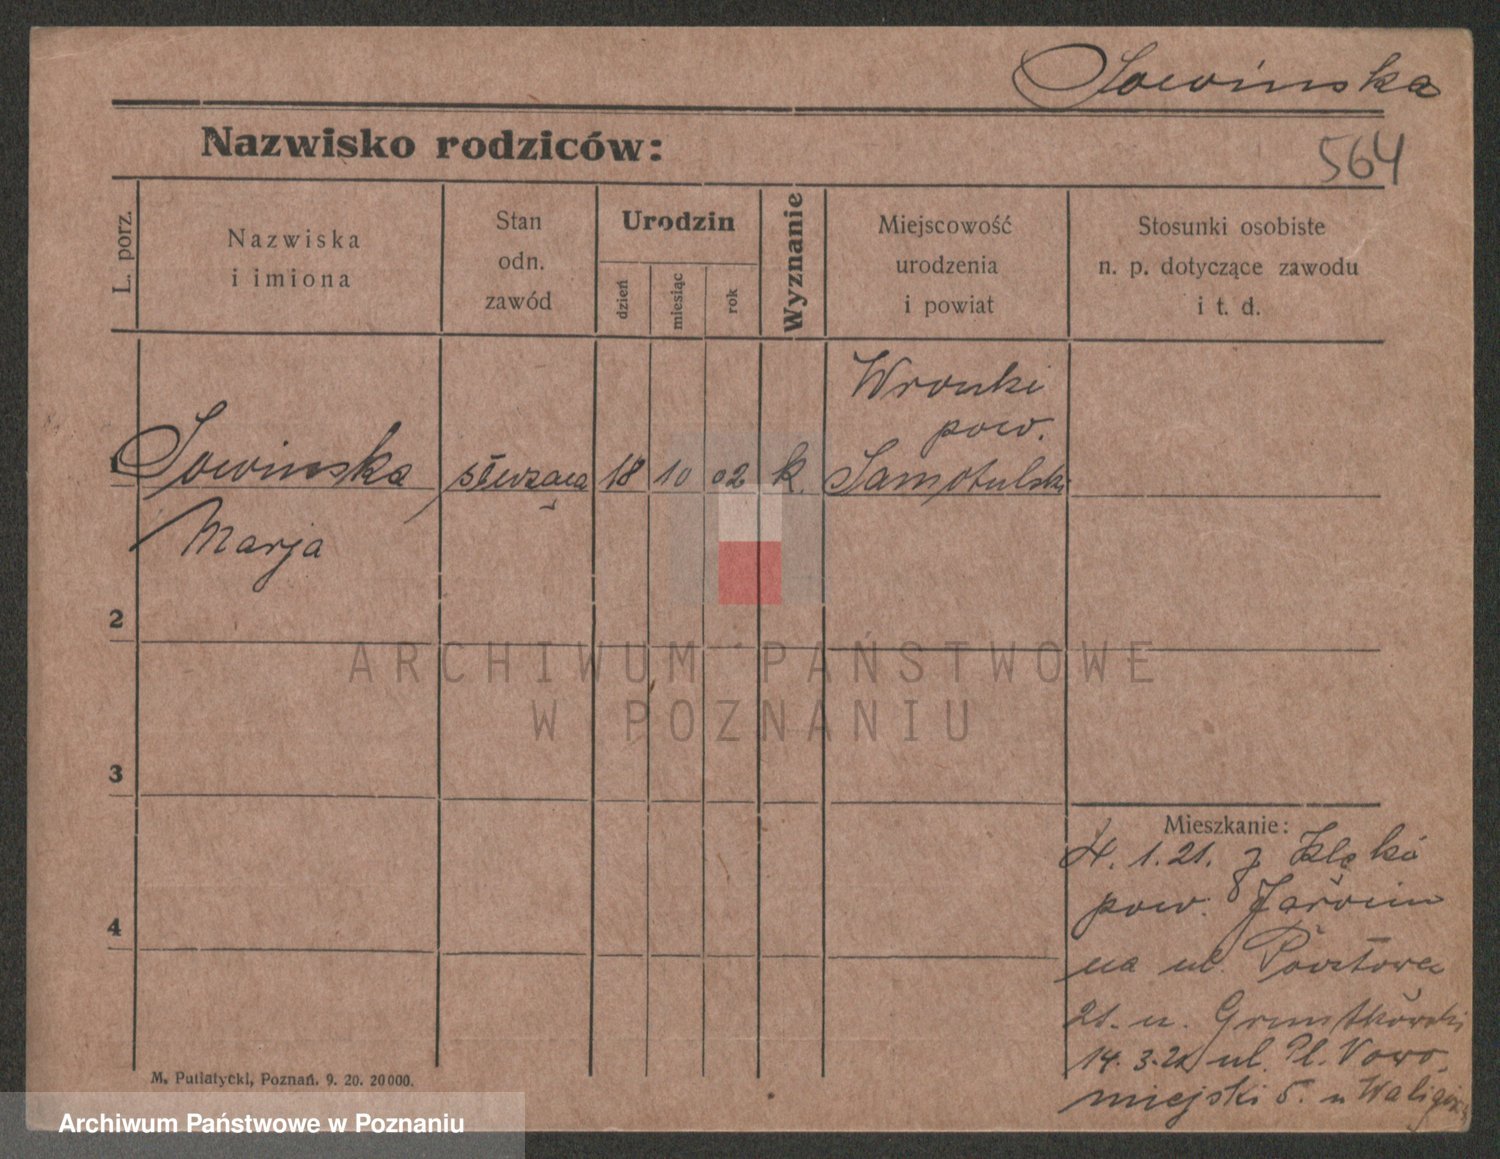 Sowinska
Nazwisko rodziców:
564
L. porz.
Nazwiska
i imiona
Stan
odn.
zawód
Urodzin
dzień
miesiąc
rok
Wyznanie
Miejscowość
urodzenia
i powiat
Stosunki osobiste
n. p. dotyczące zawodu
i t. d.
Wronki
pow.
1 Sowinska służąca 18 10 02 k. Samotulski
Marja
2
ARCHIWUM PAŃSTWOWE
W POZNANIU
3
Mieszkanie:
4. 1. 21. z Klęki
pow. Jarocin
4
na ul. Pocztowa
21. u.
14. 3. 21 ul. Pl. Nowo-
miejski 5. u
M. Putiatycki, Poznań. 9. 20. 20000.
Archiwum Państwowe w Poznaniu